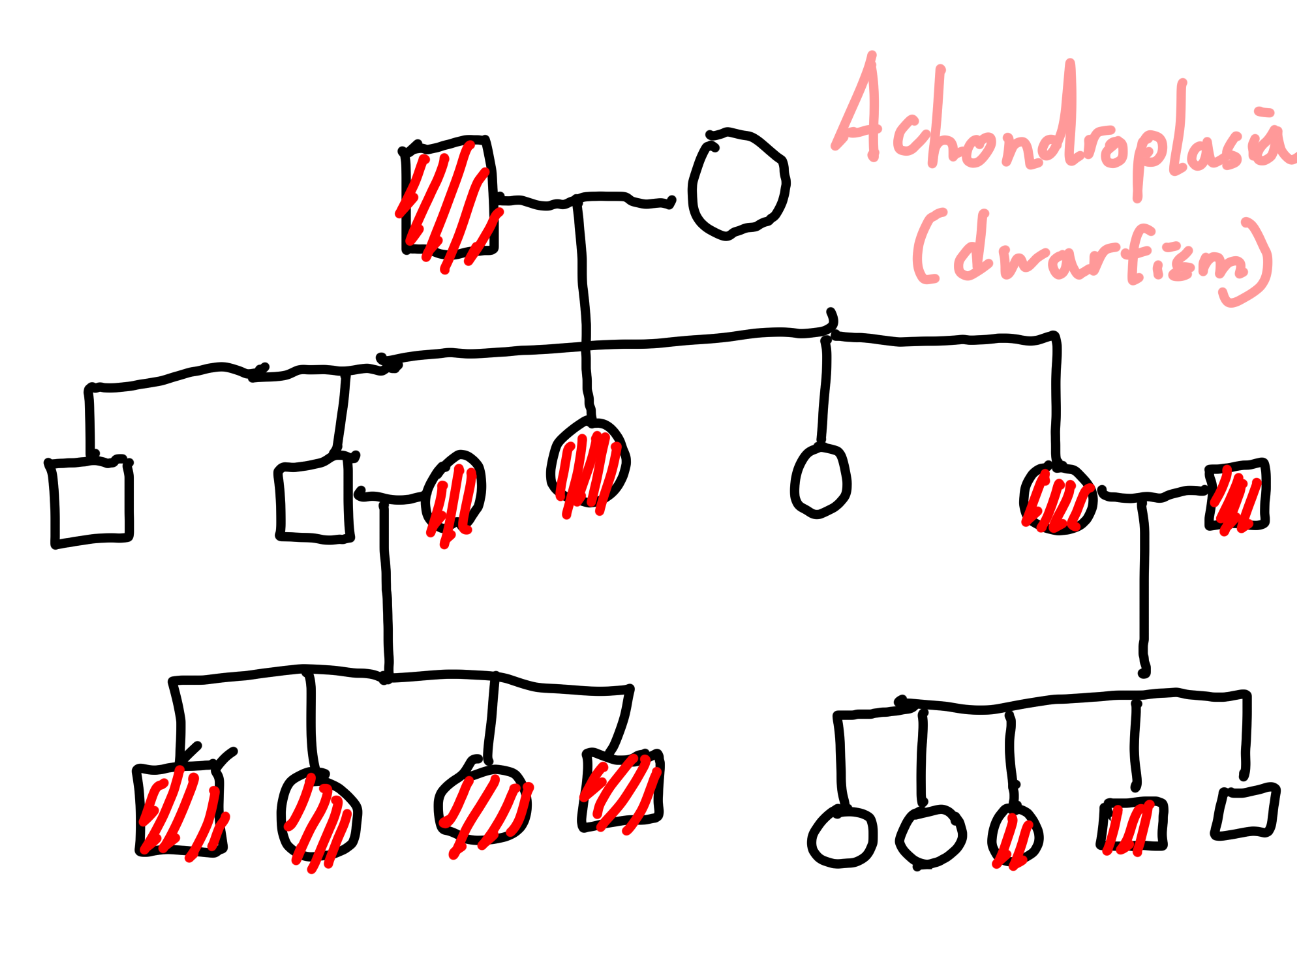 Achondroplasia
(dwarfism)